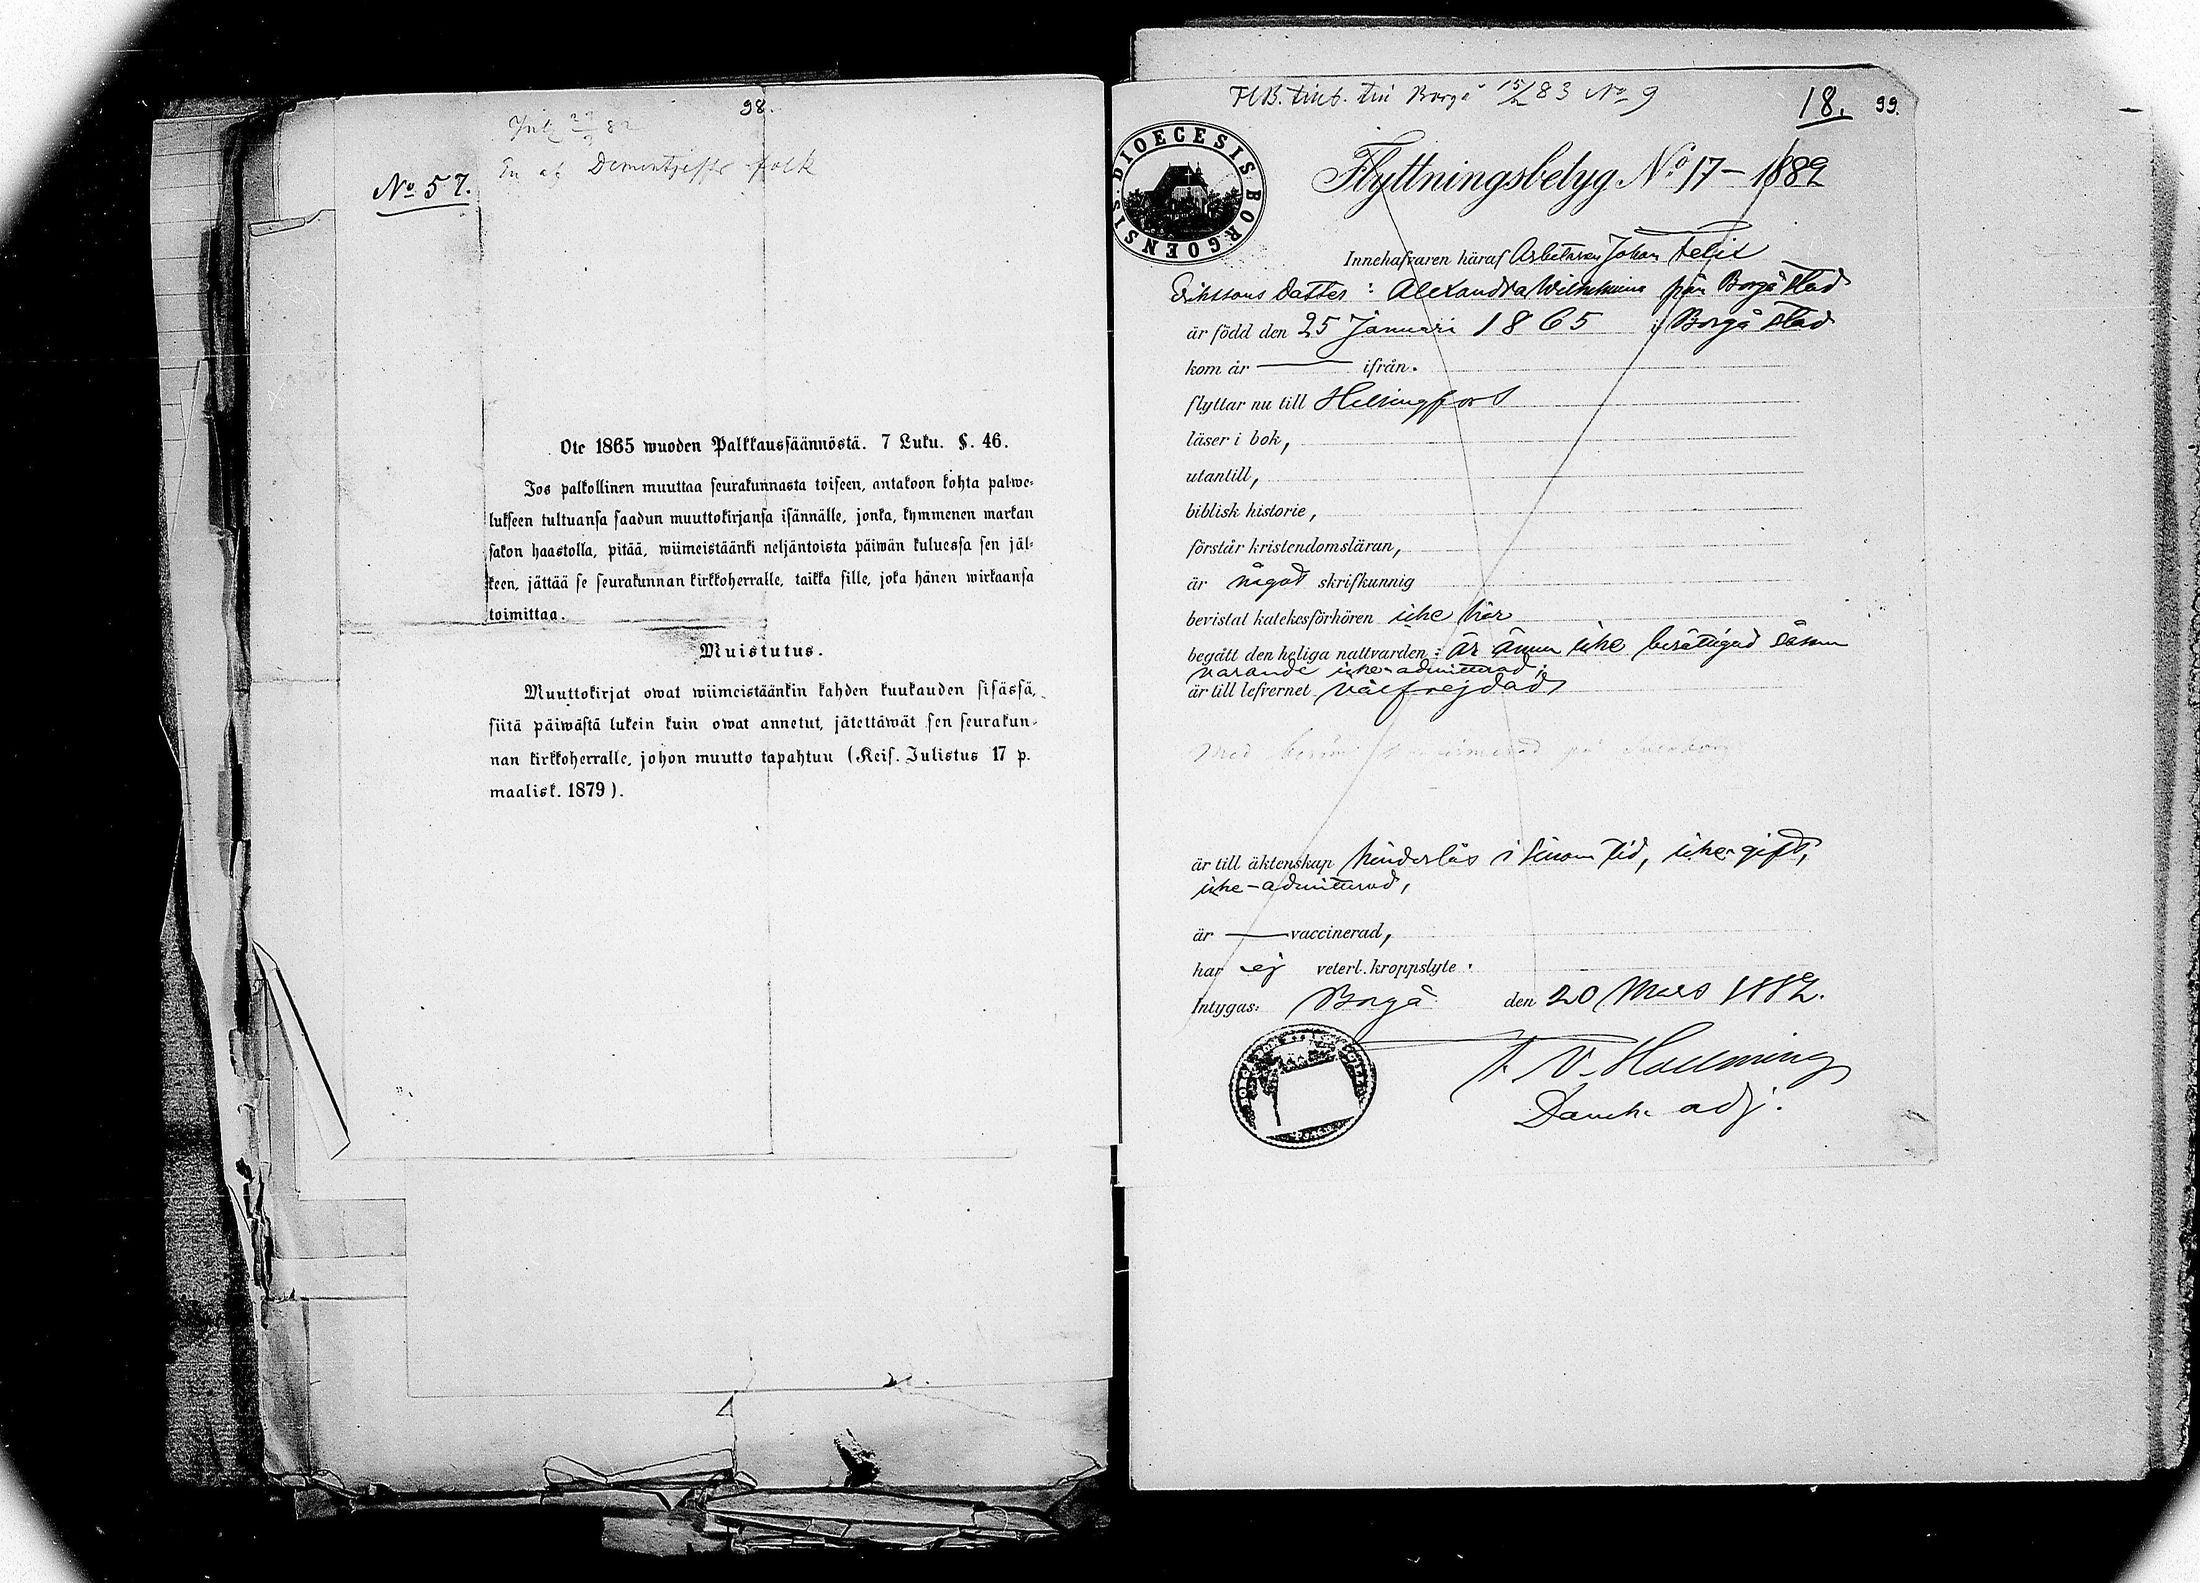 98.
No 57.
En af folk
Ote 1865 wuoden Palkkaussäännöstä. 7 Luku. §. 46.
Jos palkollinen muuttaa seurakunnasta toiseen, antakoon kohta palwe-
lukseen tultuansa saadun muuttokirjansa isännälle, jonka, kymmenen markan
sakon haastolla, pitää, wiimeistäänki neljäntoista päiwän kuluessa sen jäl-
keen, jättää se seurakunnan kirkkoherralle, taikka sille, joka hänen wirkaansa
toimittaa.
Muistutus.
Muuttokirjat owat wiimeistäänkin kahden kuukauden sisässä,
siitä päiwästä lukein kuin owat annetut, jätettäwät sen seurakun-
nan kirkkoherralle, johon muutto tapahtuu (Keis. Julistus 17 p.
maalisk. 1879).
Borgå 15/2 83 No 9
18. 99.
DIOECESIS BORGOENSIS.
Flyttningsbetyg No 17-1882
Innehafvaren häraf Arbetaren Johan Felix
Erikssons dotter: Alexandra Wilhelmina från Borgå stad
är född den 25 Januari 1865 i Borgå stad
kom år — ifrån.
flyttar nu till Helsingfors
läser i bok,
utantill,
biblisk historie,
förstår kristendomsläran,
är något skrifkunnig
bevistat katekesförhören icke här
begått den heliga nattvarden: är ännu icke berättigad såsom
varande icke-admitterad;
är till lefvernet välfrejdad
Med
är till äktenskap hinderlös i sinom tid, icke gift,
icke-admitterad,
är — vaccinerad,
har ej veterl. kroppslyte.
Intygas: Borgå den 20 Mars 1882.
adj.